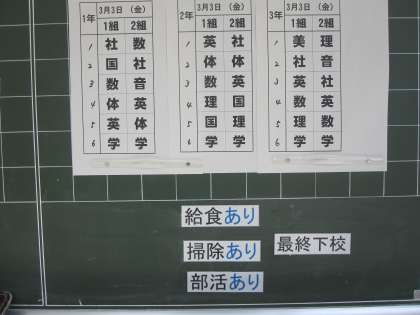 1年 3月3日 (金)
1組 2組
1 社 数
2 国 社
3 数 音
4 体 英
5 英 体
6 学 学
2年 3月3日 (金)
1組 2組
1 英 社
2 体 体
3 数 英
4 理 国
5 国 理
6 学 学
3年 3月3日 (金)
1組 2組
1 美 理
2 社 音
3 英 社
4 数 英
5 理 数
6 学 学
給食あり
掃除あり
最終下校
部活あり